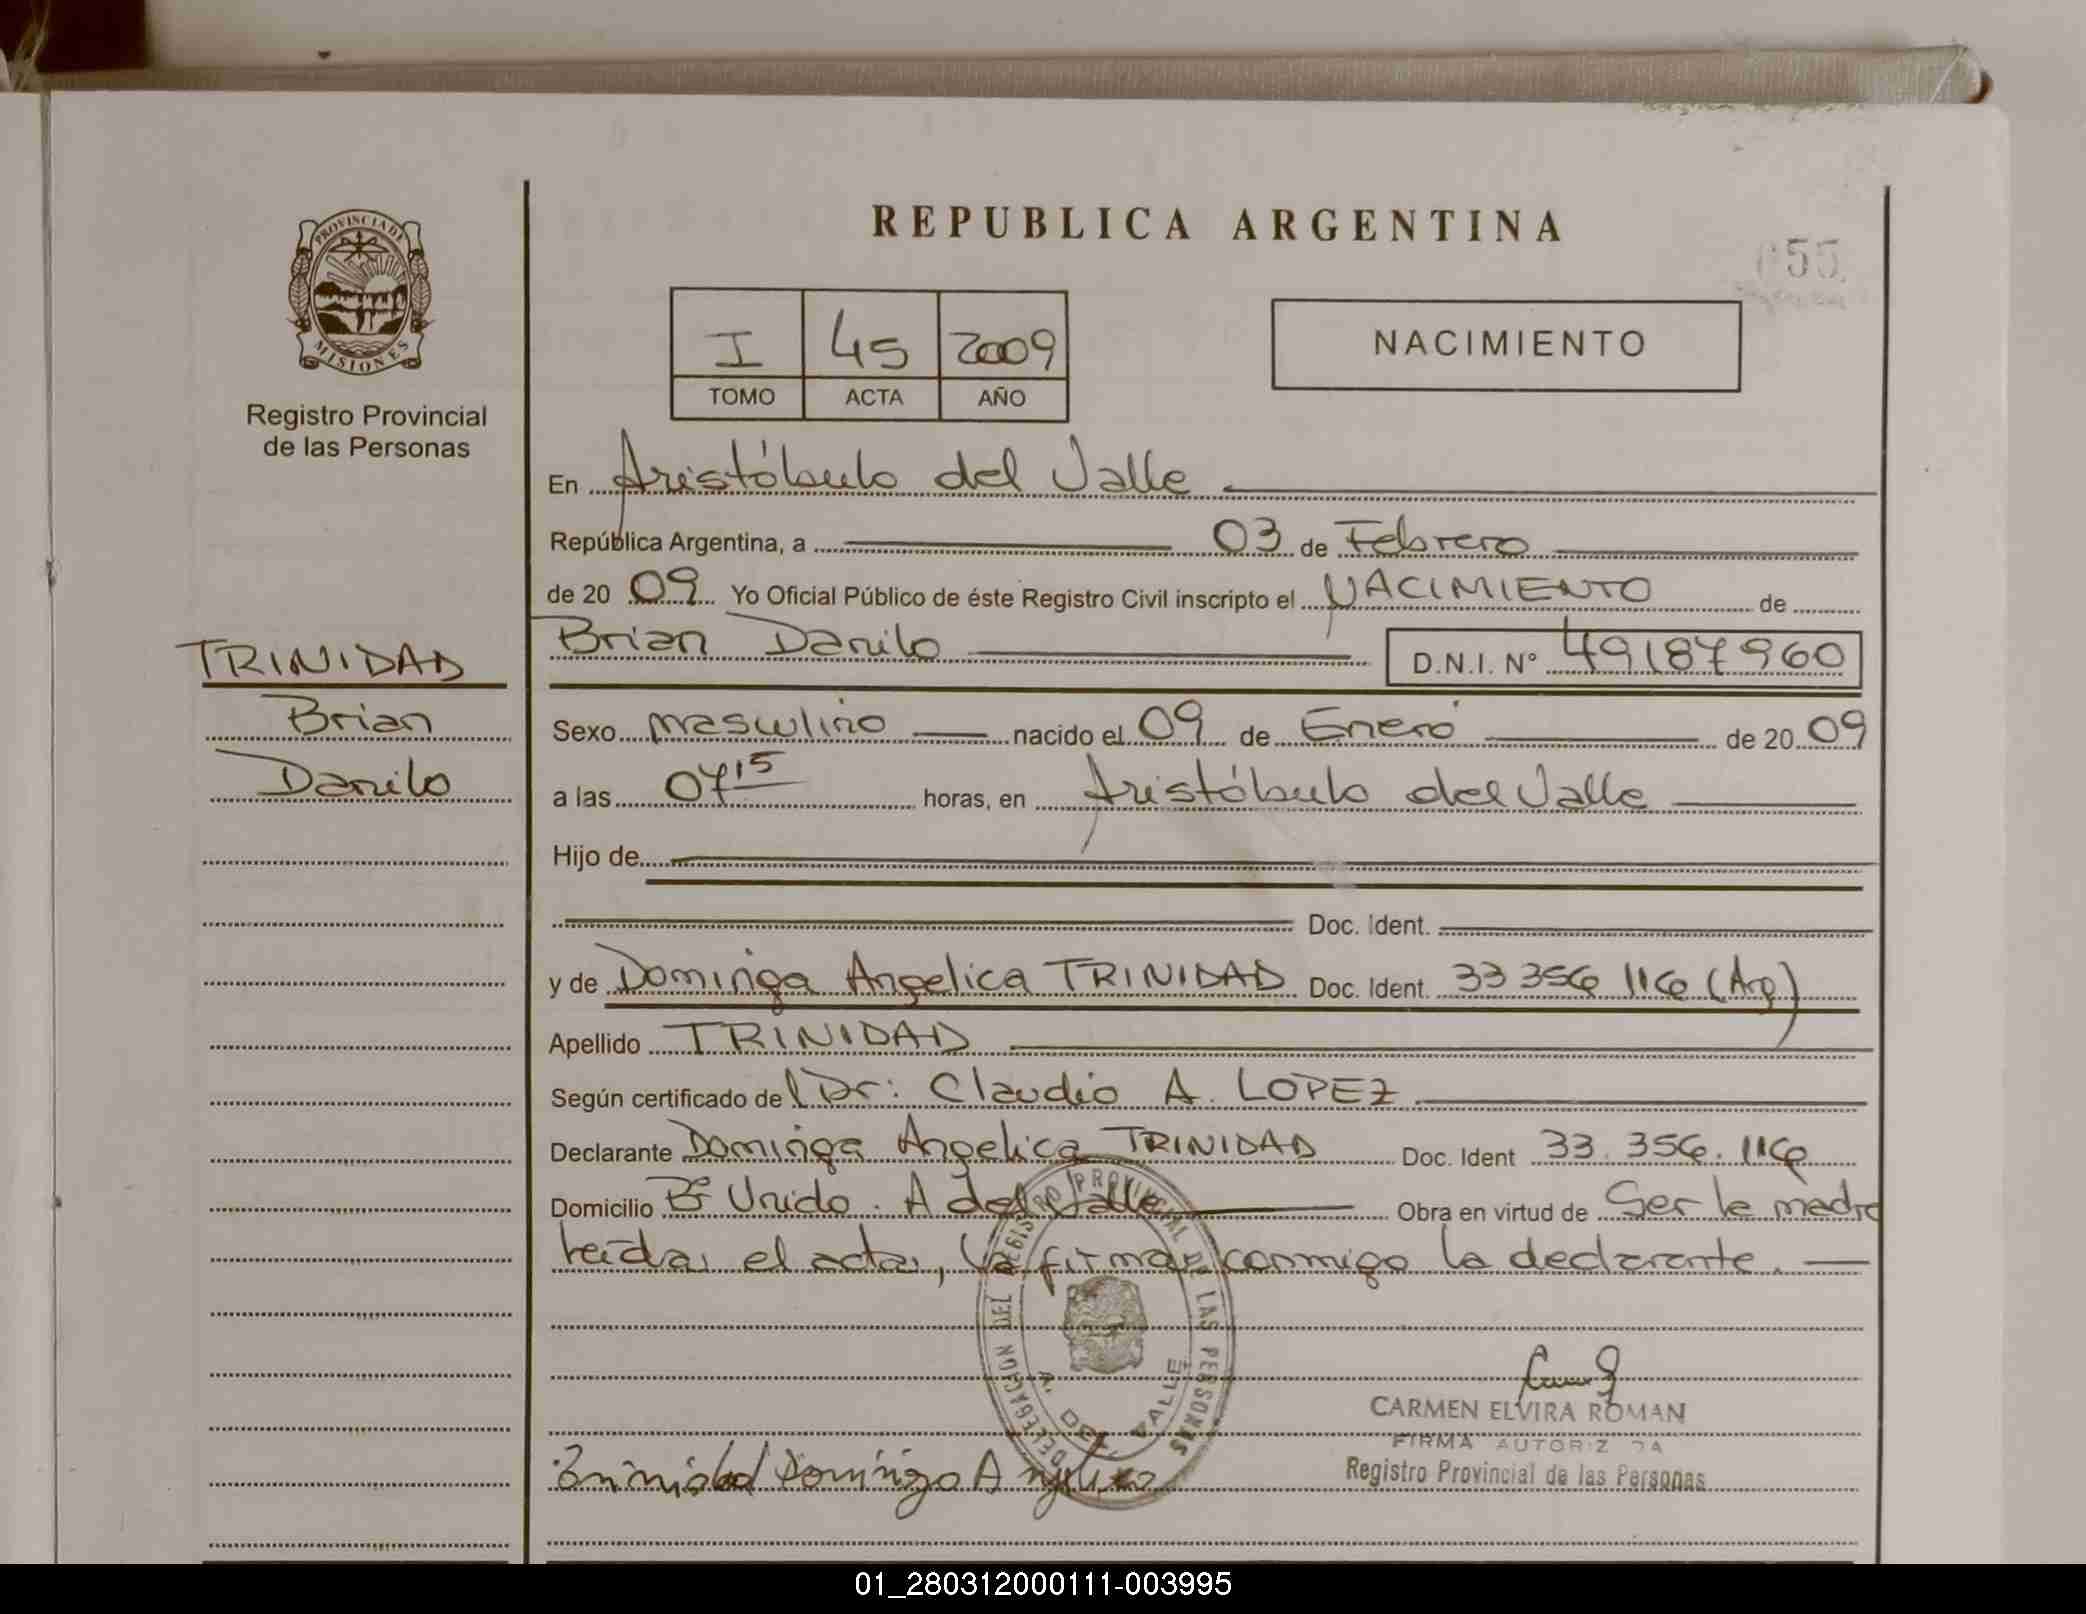 REPUBLICA ARGENTINA
055
PROVINCIA DE
MISIONES
Registro Provincial
de las Personas
I 45 2009
TOMO ACTA AÑO
NACIMIENTO
En Aristóbulo del Valle
República Argentina, a 03 de Febrero
de 20 09 Yo Oficial Público de éste Registro Civil inscripto el NACIMIENTO de
Brian Danilo D.N.I. Nº 49187960
TRINIDAD
Brian
Danilo
Sexo masculino nacido el 09 de Enero de 20 09
a las 07 15 horas, en Aristóbulo del Valle
Hijo de
Doc. Ident.
y de Dominga Angelica TRINIDAD Doc. Ident. 33 356 116 (Arg)
Apellido TRINIDAD
Según certificado de Dr: Claudio A. LOPEZ
Declarante Dominga Angelica TRINIDAD Doc. Ident 33. 356. 116
Domicilio Bº Unido. A del Valle Obra en virtud de Ser la madre
leída el acta, la firma conmigo la declarante.
DELEGACION DEL REGISTRO PROVINCIAL DE LAS PERSONAS
A. DEL VALLE
CARMEN ELVIRA ROMAN
FIRMA AUTORIZ DA
Registro Provincial de las Personas
Trinidad Dominga Angelica
01_280312000111-003995